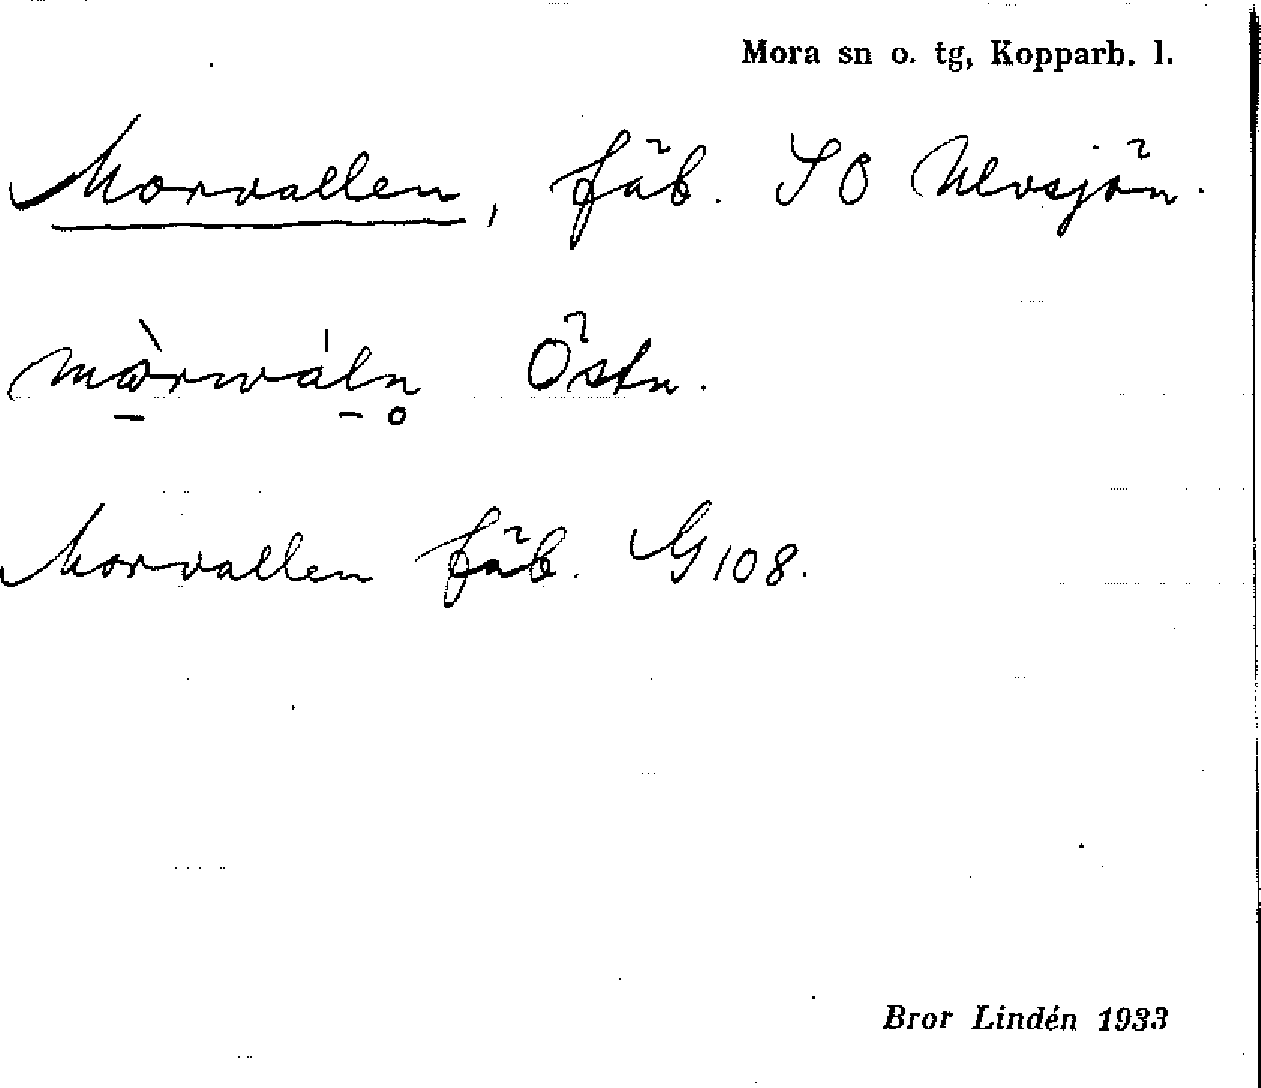 Mora sn o. tg, Kopparb. l.
Morvallen, fäb. SO Ulvsjön.
mò̱rwá̱ln̥ Östn.
Morvallen fäb. G 108.
Bror Lindén 1933